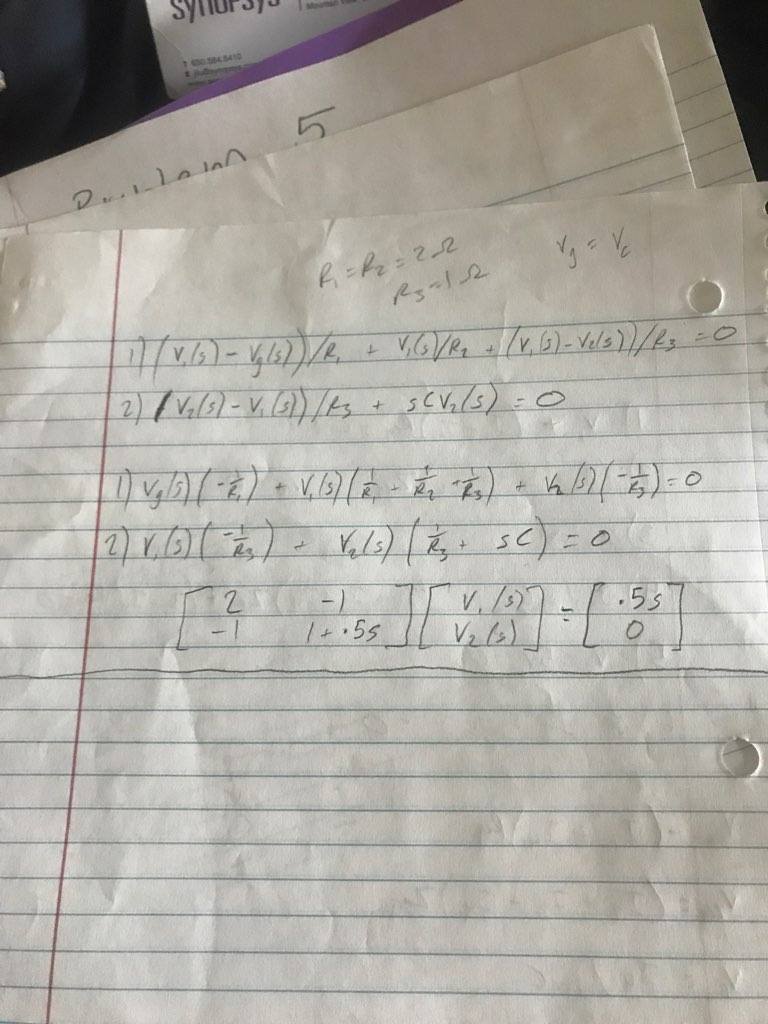 SYNOPSYS
T 650.584.8410
5
R₁ = R₂ = 2Ω
Vg = Vc
R₃ = 1Ω
1) (V₁(s) - Vg(s))/R₁ + V₁(s)/R₂ + (V₁(s) - V₂(s))/R₃ = 0
2) (V₂(s) - V₁(s))/R₃ + sCV₂(s) = 0
1) Vg(s)(-1/R₁) + V₁(s)(1/R₁ + 1/R₂ + 1/R₃) + V₂(s)(-1/R₃) = 0
2) V₁(s)(-1/R₃) + V₂(s)(1/R₃ + sC) = 0
[2 -1] [V₁(s)] = [.5s]
[-1 1+.5s] [V₂(s)] [0]